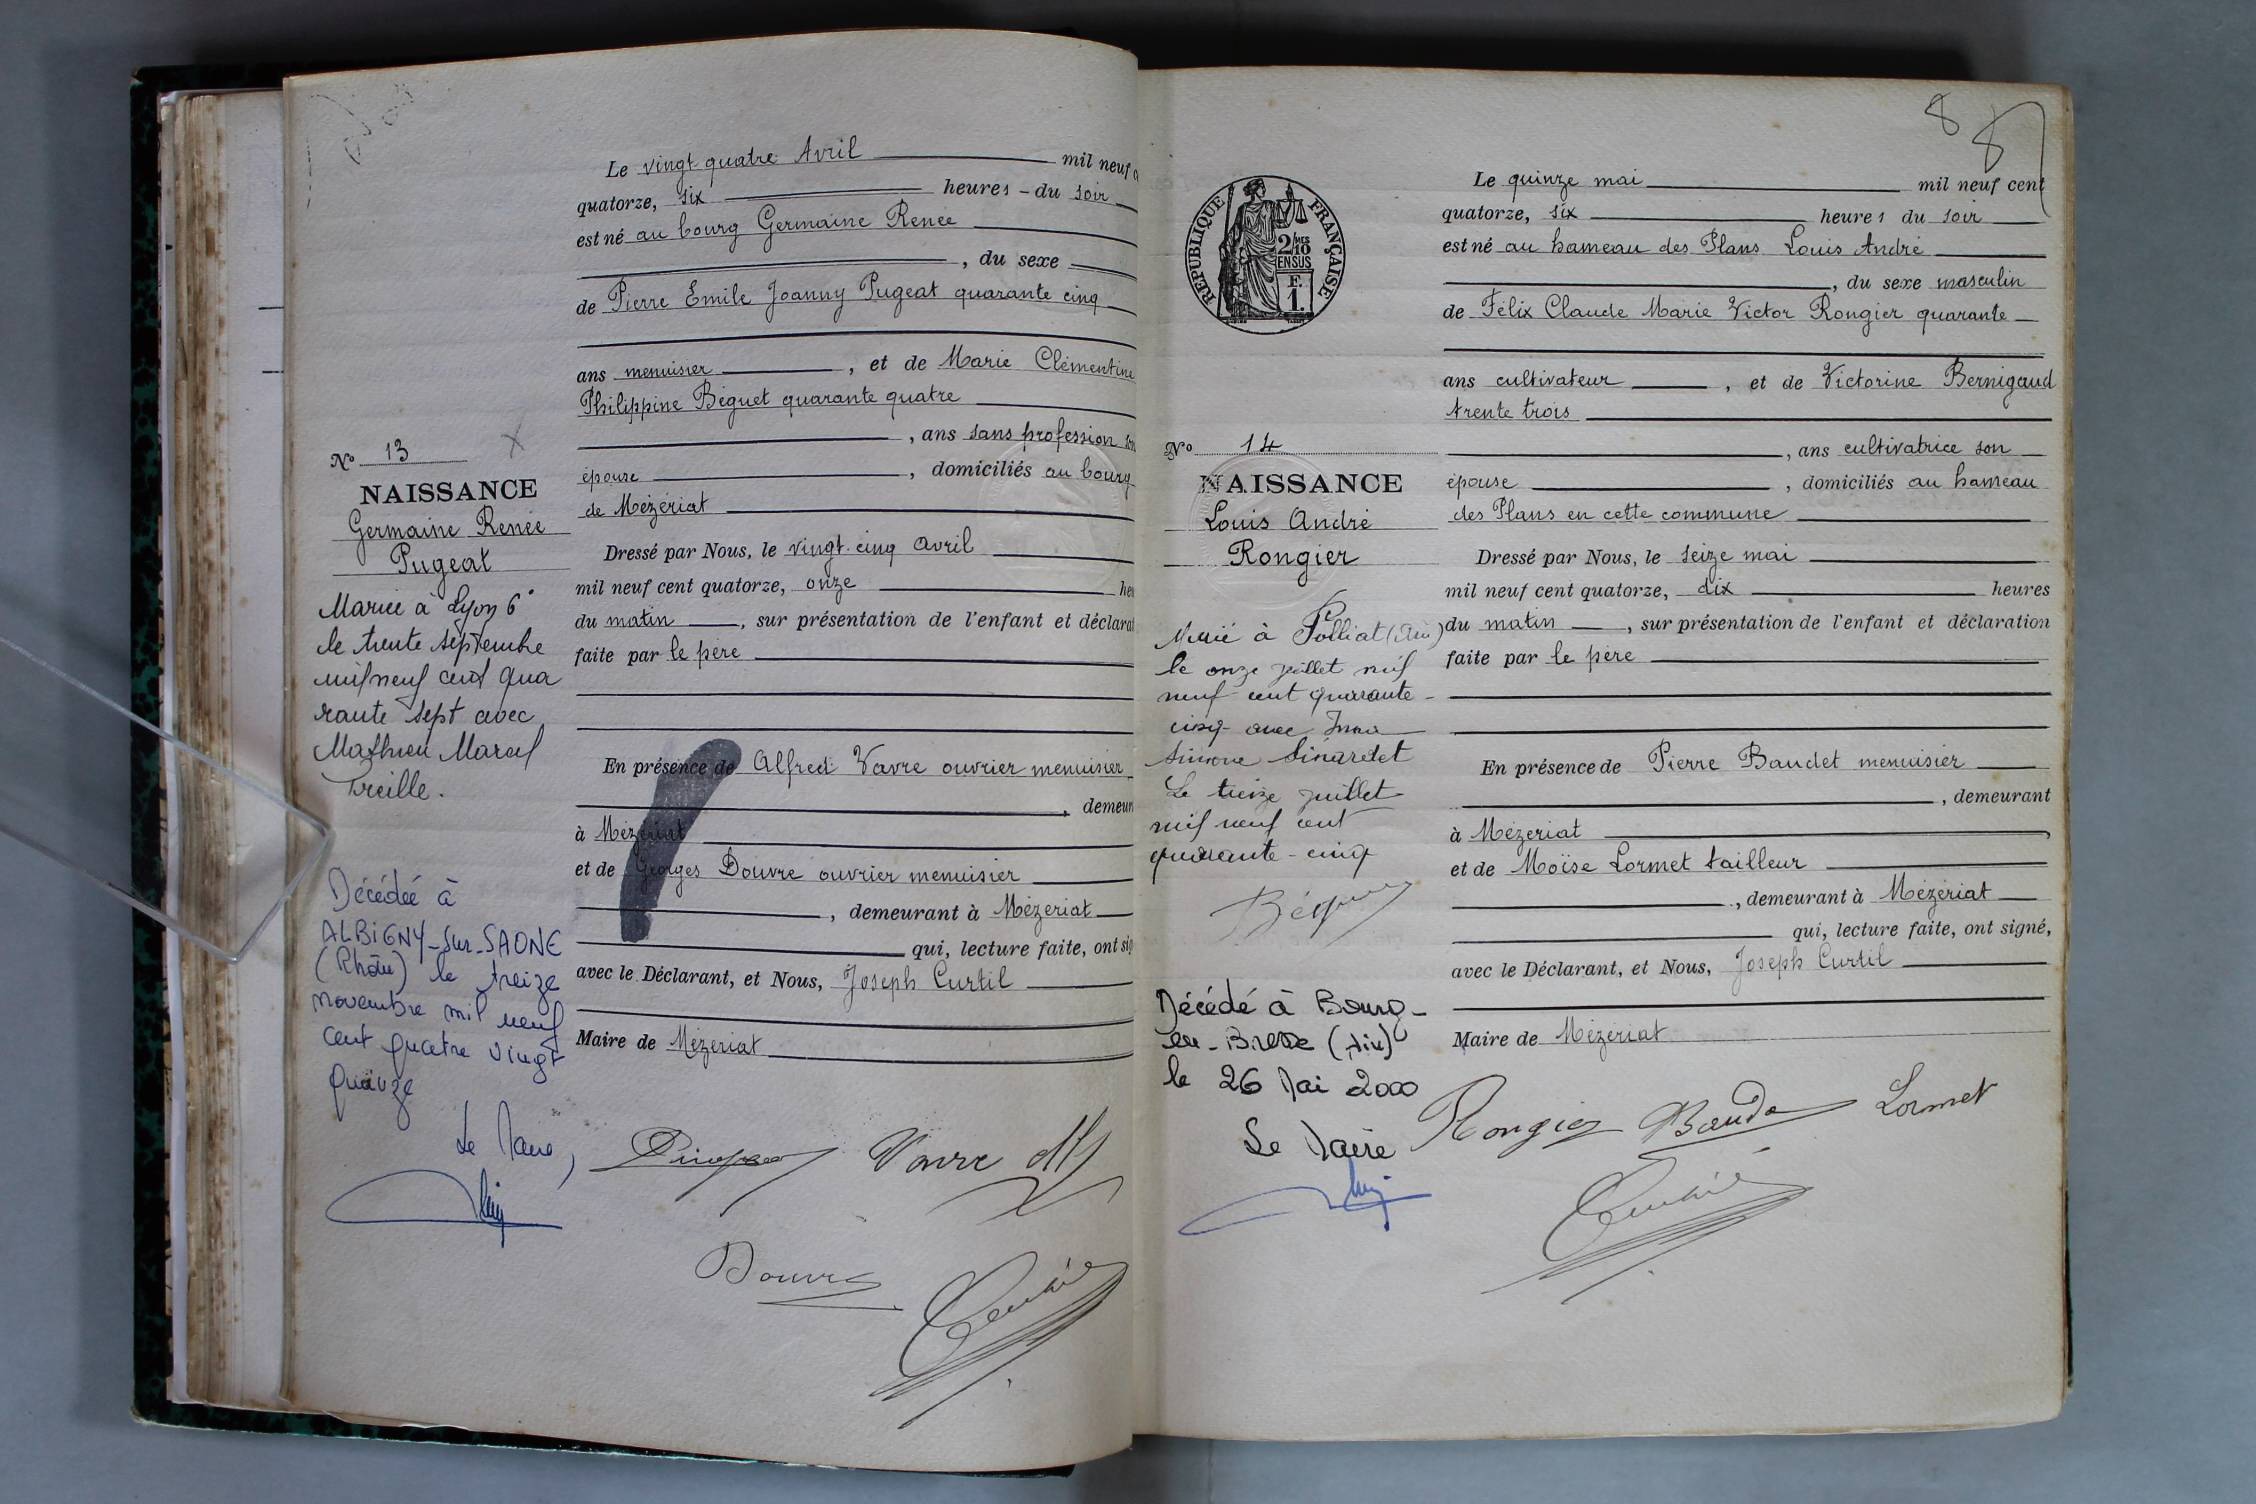 Le vingt quatre Avril mil neuf
quatorze, six heures du soir
est né au bourg Germaine Renée
, du sexe
de Pierre Emile Joanny Pugeat quarante cinq
ans menuisier , et de Marie Clémentine
Philippine Béguet quarante quatre
, ans sans profession son
épouse , domiciliés au bourg
de Mézériat
Dressé par Nous, le vingt-cinq avril
mil neuf cent quatorze, onze heu
du matin , sur présentation de l'enfant et déclarat
faite par le père
En présence de Alfred Vavre ouvrier menuisier
, demeur
à Mézériat
et de Georges Douvre ouvrier menuisier
, demeurant à Mézériat
qui, lecture faite, ont sig
avec le Déclarant, et Nous, Joseph Curtil
Maire de Mézériat
Vavre
Douvre
No 13
NAISSANCE
Germaine Renée
Pugeat
Mariée à Lyon 6e
le trente septembre
mil neuf cent qua
rante sept avec
Mathieu Marcel
Treille.
Décédée à
ALBIGNY-sur-SAONE
(Rhône) le treize
novembre mil neuf
cent quatre vingt
quinze
Le Maire,
8
RÉPUBLIQUE FRANÇAISE
2/10 MES
EN SUS
F.
1.
Le quinze mai mil neuf cent
quatorze, six heures du soir
est né au hameau des Plans Louis André
, du sexe masculin
de Félix Claude Marie Victor Rongier quarante
ans cultivateur , et de Victorine Bernigaud
trente trois
, ans cultivatrice son
épouse , domiciliés au hameau
des Plans en cette commune
Dressé par Nous, le seize mai
mil neuf cent quatorze, dix heures
du matin , sur présentation de l'enfant et déclaration
faite par le père
En présence de Pierre Baudet menuisier
, demeurant
à Mézériat
et de Moïse Lormet tailleur
, demeurant à Mézériat
qui, lecture faite, ont signé,
avec le Déclarant, et Nous, Joseph Curtil
Maire de Mézériat
Rongier Baude Lormet
No 14
NAISSANCE
Louis André
Rongier
Marié à Polliat (Ain)
le onze juillet mil
neuf cent quarante-
cinq avec Irma
Simone Sinardet
Le treize juillet
mil neuf cent
quarante-cinq
Décédé à Bourg-
en-Bresse (Ain)
le 26 Mai 2000
Le Maire